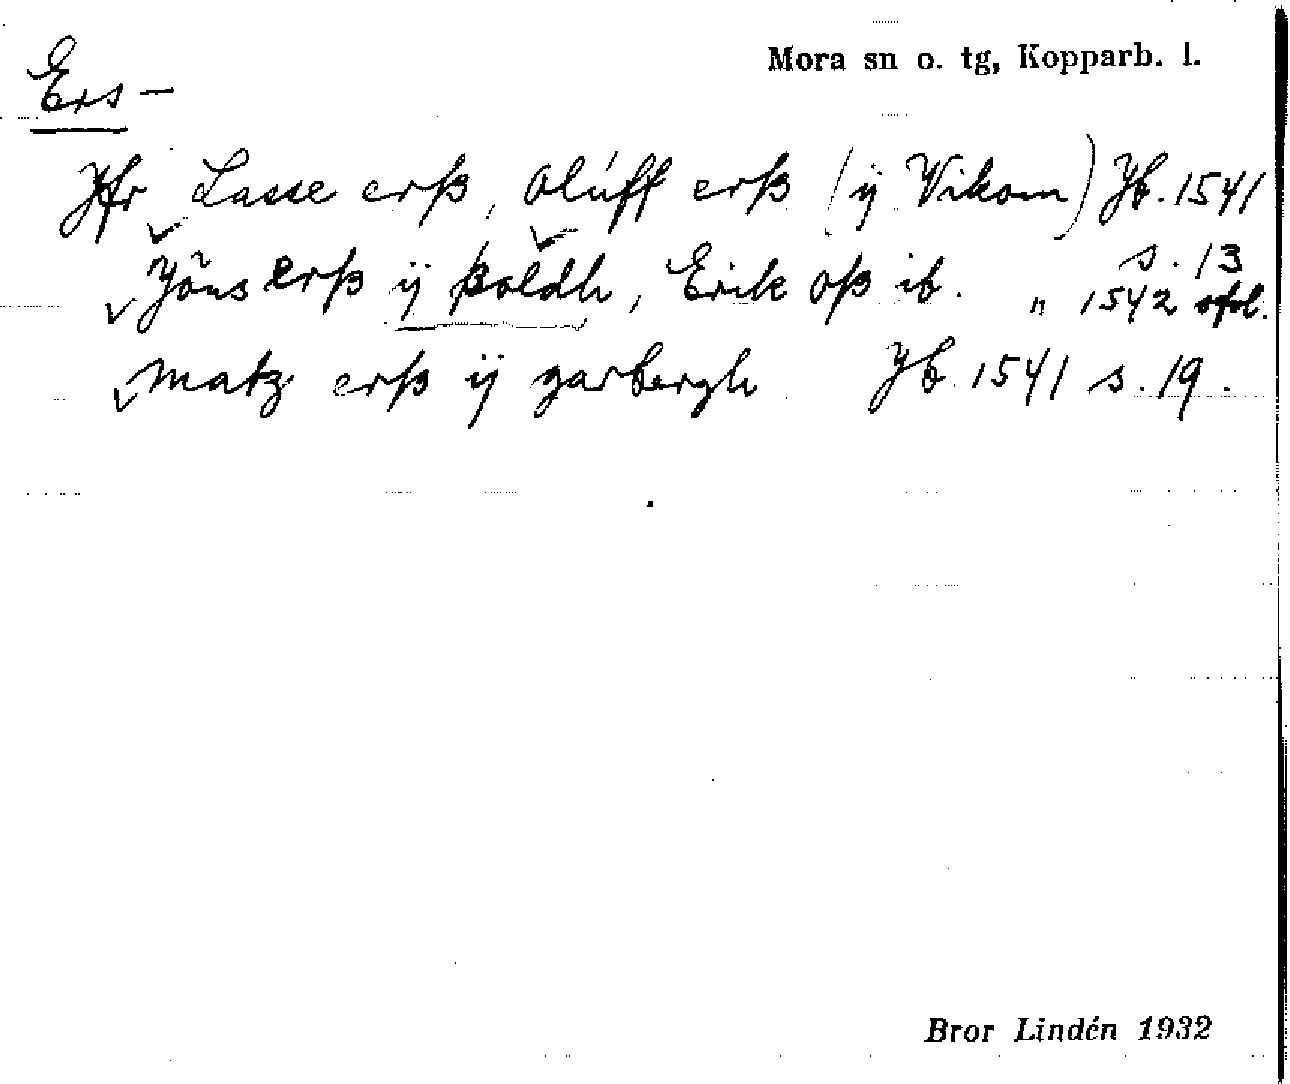 Mora sn o. tg, Kopparb. l.
Ers-
Jfr Lasse erß, Olúff erß (ÿ Vikom) Jb. 1541 s. 13
Jöns erß ÿ ßoldh, Erik Oß ib. " 1542 ofol.
Matz erß ÿ garbergh Jb. 1541 s. 19.
Bror Lindén 1932